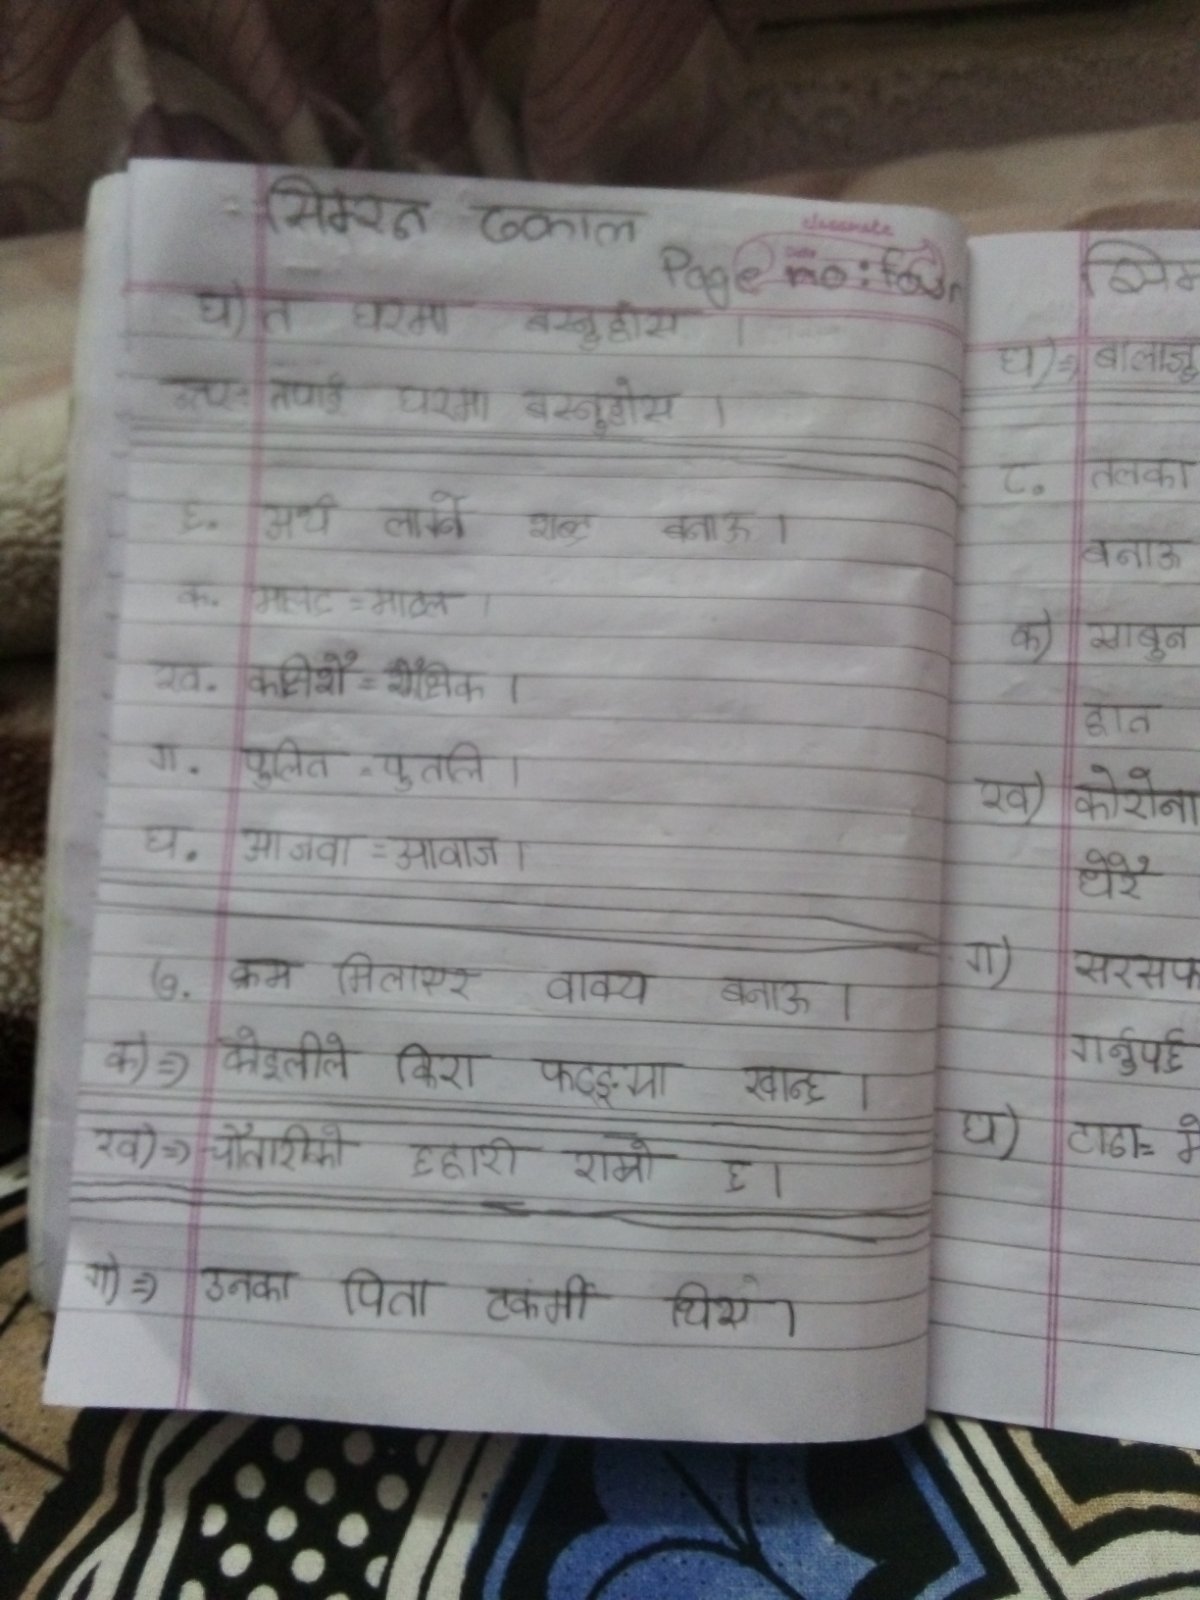 सिमरन ढकाल
classmate
Date
Page no: four
घ) त घरमा बस्नुहोस ।
उत्तर= तपाई घरमा बस्नुहोस ।
६. अर्थ लाग्ने शब्द बनाऊ ।
क. मलट = माटल ।
ख. कक्षिशै = शैक्षिक ।
ग. पुलित = पुतलि ।
घ. आजवा = आवाज ।
७. क्रम मिलाएर वाक्य बनाऊ ।
क) => कोइलीले किरा फट्ङ्मा खान्छ ।
ख) => चौतारीको छहारी राम्रो छ ।
ग) => उनका पिता टकर्मी थिए ।
सिम
घ) => बालाजु
८. तलका
बनाऊ
क) साबुन
हात
ख) कोरोना
धेरै
ग) सरसफ
गर्नुपर्छ
घ) टाढा= मे